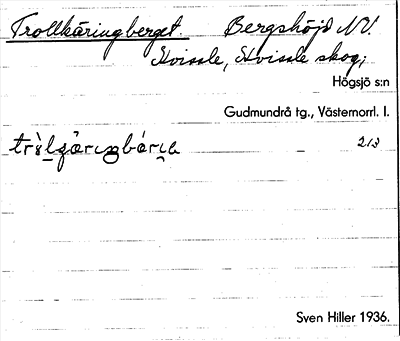 Trollkäringberget. Bergshöjd NV.
Hvissle, Hvissle skog,
Högsjö s:n
Gudmundrå tg., Västernorrl. l.
213
Sven Hiller 1936.